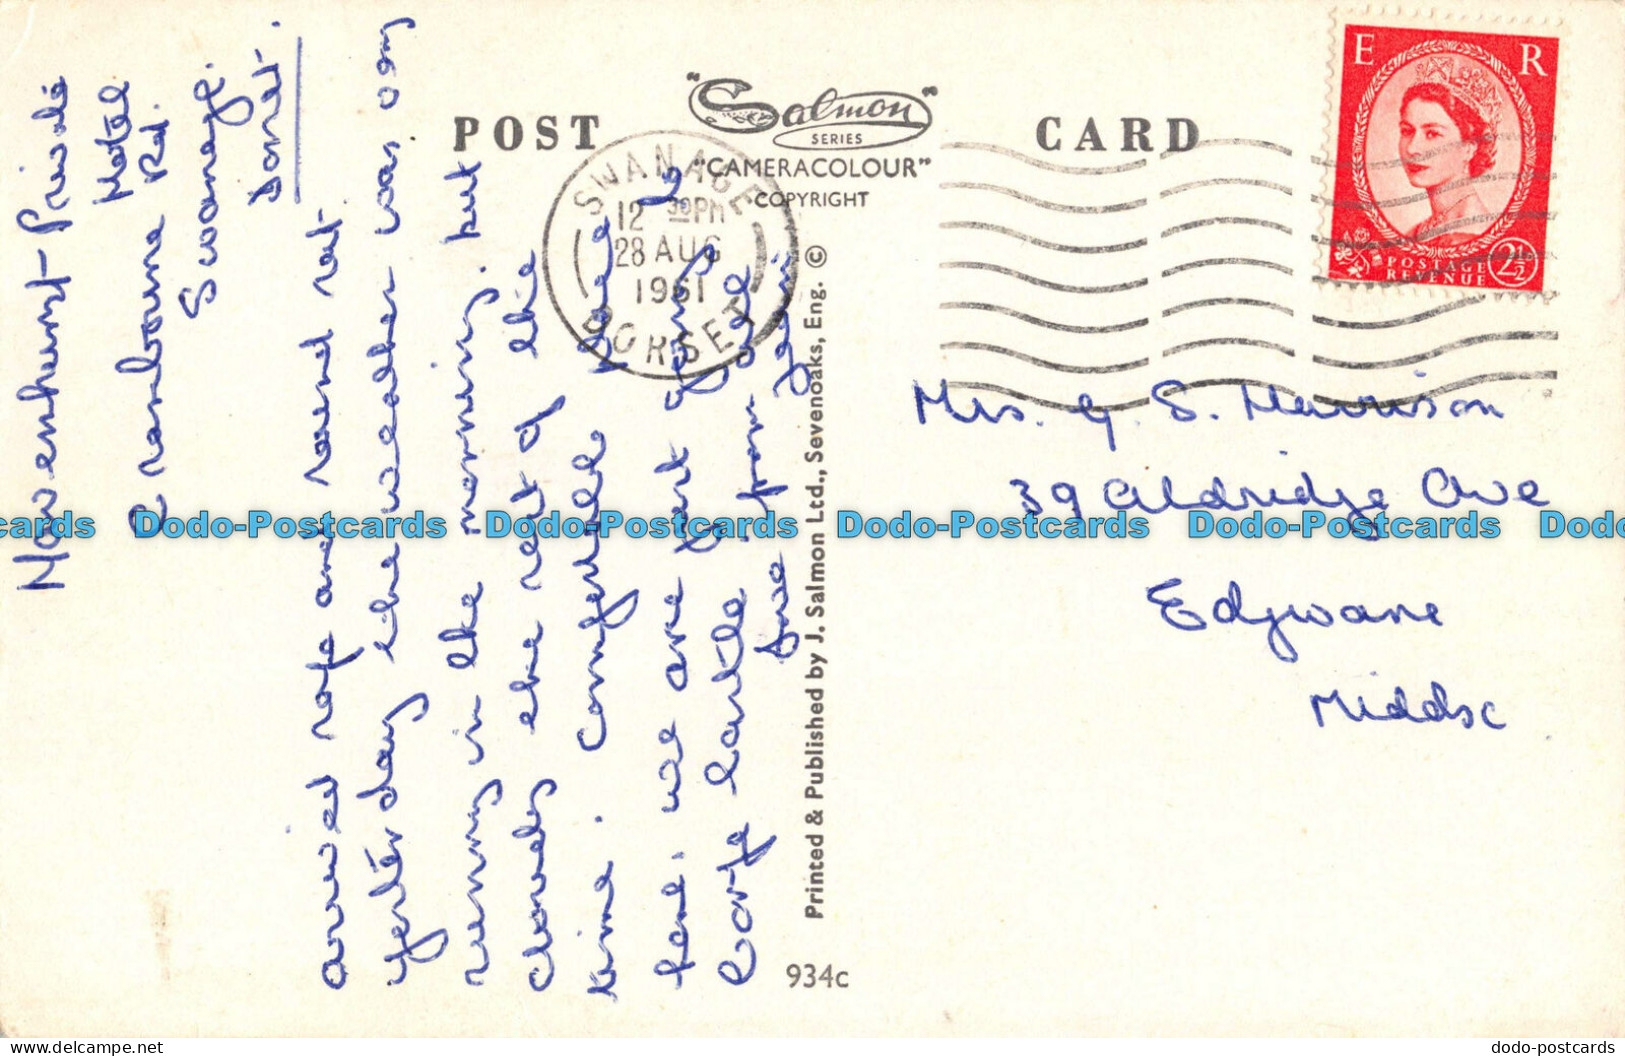 POST
"Salmon"
SERIES
"CAMERACOLOUR"
COPYRIGHT
CARD
E R
POSTAGE
REVENUE
2½
SWANAGE
12 30PM
28 AUG
1961
DORSET
Private
Hotel
Rd.
Swanage.
Dorset.
arrived safe and sound sat.
yesterday the weather was very
sunny in the morning, but
cloudy the rest of the
time. Comfortable place
here. we are just going to
Corfe Castle
love from all
Mrs. G. S. Harrison
39 Aldridge Ave
Edgware
Middsx
Printed & Published by J. Salmon Ltd., Sevenoaks, Eng. ©
934c
cards Dodo-Postcards Dodo-Postcards Dodo-Postcards Dodo-Postcards Dodo
dodo-postcards
www.delcampe.net